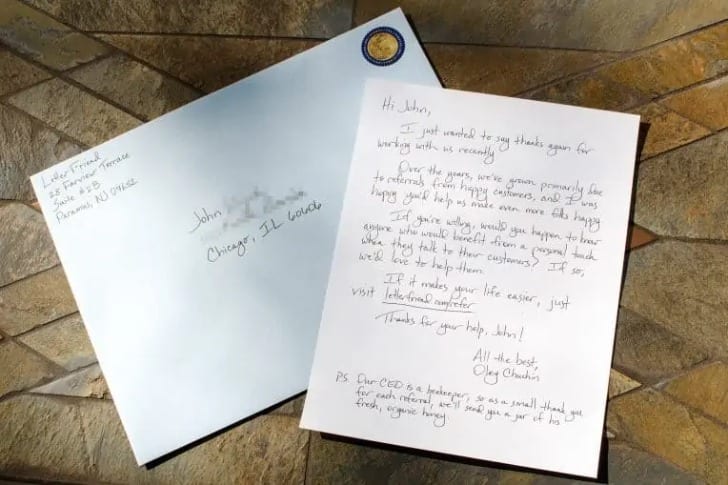 Letter Friend
28 Fairview Terrace
Suite #2B
Paramus, NJ 07652
John
Chicago, IL 60606
Hi John,
I just wanted to say thanks again for
working with us recently
Over the years, we've grown primarily due
to referrals from happy customers, and I was
hoping you'd help us make even more folks happy
If you're willing, would you happen to know
anyone who would benefit from a personal touch
when they talk to their customers? If so,
we'd love to help them.
If it makes your life easier, just
visit letterfriend.com/refer
Thanks for your help, John!
All the best,
Oleg
P.S. Our CEO is a beekeeper, so as a small thank you
for each referral, we'll send you a jar of his
fresh, organic honey.